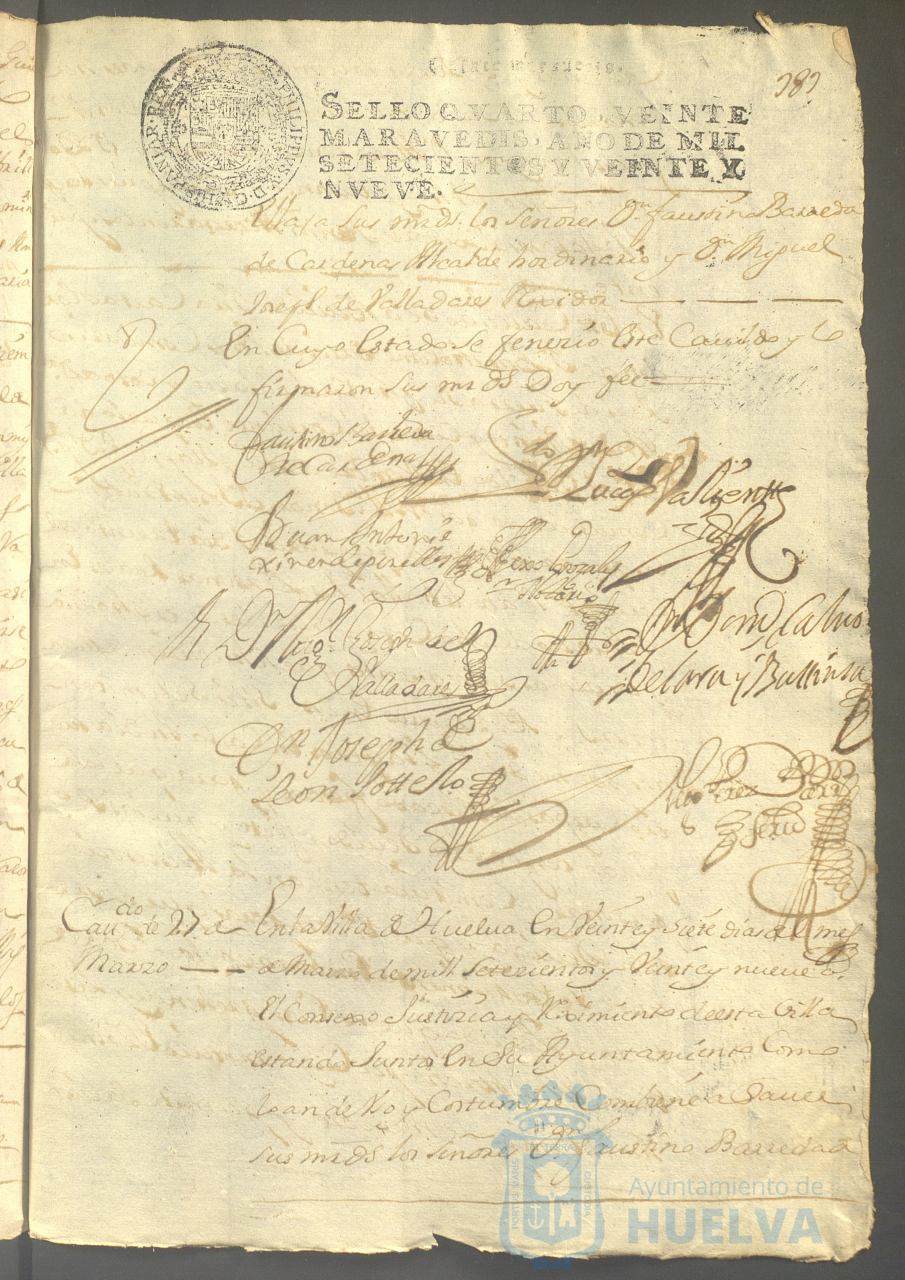 SELLO QVARTO, VEINTE
MARAVEDIS, AÑO DE MIL
SETECIENTOS Y VEINTE Y
NVEVE.
Villa a sus mrds. los Señores Dn. faustino Barreda
de Cardenas Alcalde hordinario y Dn. Miguel
Joseph de Valladares Rexidor
En Cuyo Estado se fenezio este Cauildo y lo
firmaron sus mrds Doy fee
Faustino Barreda
de Cardenas
Lucas Valiente
Juan Antonio
Notario
Dn. Joseph de
Valladares
Calbo
de lara y Buttista
Dn Joseph de
León Sottelo
Caudo de 27 de
Marzo
En la Villa de Huelua en Veinte y Siete dias del mes
de Marzo de mill Setezientos y Veinte y nueve as.
El Consexo Justizia y Reximiento de esta Villa
estando Juntos En Su Ayuntamiento Como
lo an de Uso y Costumbre Combiene a Sauer
sus mrds los señores Dn Faustino Barreda de
Ayuntamiento de
HUELVA